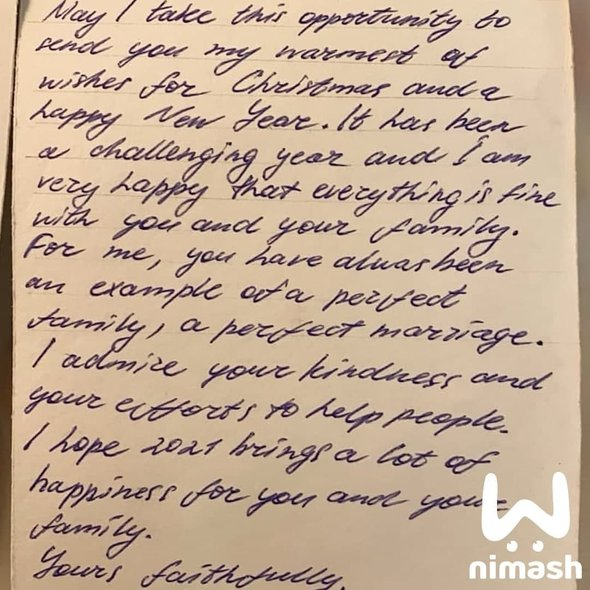 May I take this opportunity to
send you my warmest of
wishes for Christmas and a
happy New Year. It has been
a challenging year and I am
very happy that everything is fine
with you and your family.
For me, you have alwas been
an example of a perfect
family, a perfect marriage.
I admire your kindness and
your efforts to help people.
I hope 2021 brings a lot of
happiness for you and your
family.
Yours faithfully,
nimash